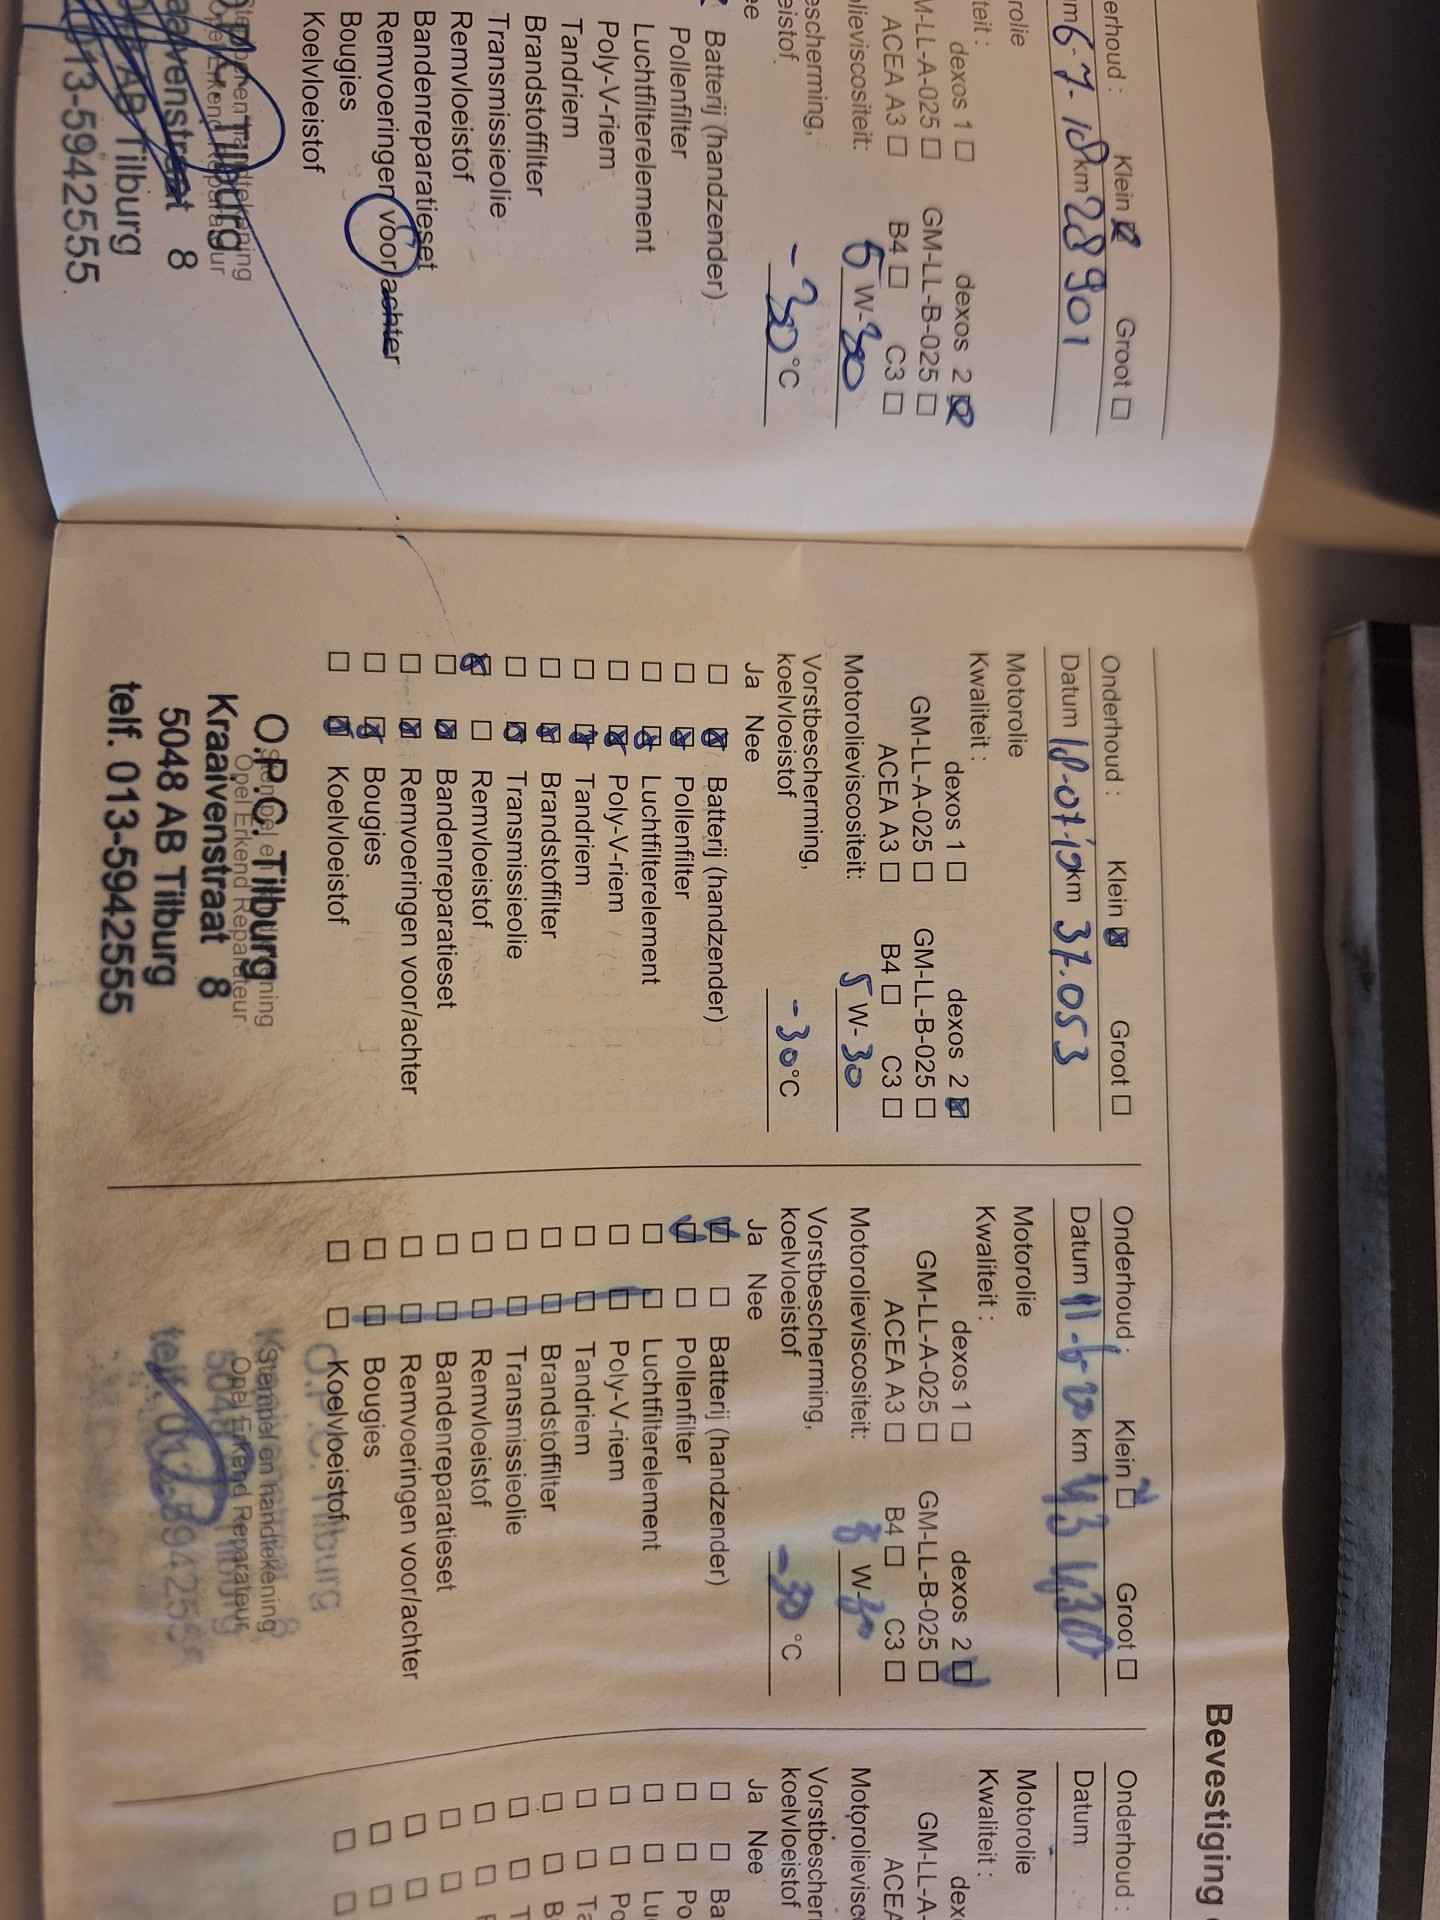 Bevestiging
erhoud : Klein Groot
6-7-18 km 28901
rolie
teit :
dexos 1 dexos 2
M-LL-A-025 GM-LL-B-025
ACEA A3 B4 C3
olieviscositeit: 5 W-30
escherming,
eistof. -30 °C
ee
Batterij (handzender)
Pollenfilter
Luchtfilterelement
Poly-V-riem
Tandriem
Brandstoffilter
Transmissieolie
Remvloeistof
Bandenreparatieset
Remvoeringen voor/achter
Bougies
Koelvloeistof
Tilburg
8
AB Tilburg
013-5942555
Onderhoud : Klein Groot
Datum 18-07-'19 km 37.053
Motorolie
Kwaliteit :
dexos 1 dexos 2
GM-LL-A-025 GM-LL-B-025
ACEA A3 B4 C3
Motorolieviscositeit: 5 W-30
Vorstbescherming,
koelvloeistof -30 °C
Ja Nee
Batterij (handzender)
Pollenfilter
Luchtfilterelement
Poly-V-riem
Tandriem
Brandstoffilter
Transmissieolie
Remvloeistof
Bandenreparatieset
Remvoeringen voor/achter
Bougies
Koelvloeistof
Stempel en handtekening
Opel Erkend Reparateur
O.P.C. Tilburg
Kraaivenstraat 8
5048 AB Tilburg
telf. 013-5942555
Onderhoud : Klein Groot
Datum km
Motorolie
Kwaliteit :
dexos 1 dexos 2
GM-LL-A-025 GM-LL-B-025
ACEA A3 B4 C3
Motorolieviscositeit: W-30
Vorstbescherming,
koelvloeistof -30 °C
Ja Nee
Batterij (handzender)
Pollenfilter
Luchtfilterelement
Poly-V-riem
Tandriem
Brandstoffilter
Transmissieolie
Remvloeistof
Bandenreparatieset
Remvoeringen voor/achter
Bougies
Koelvloeistof
Stempel en handtekening
Opel Erkend Reparateur
Onderhoud :
Datum
Motorolie
Kwaliteit :
dex
GM-LL-A-
ACEA
Motorolievisc
Vorstbescher
koelvloeistof
Ja Nee
Ba
Po
Lu
Po
Ta
B
T